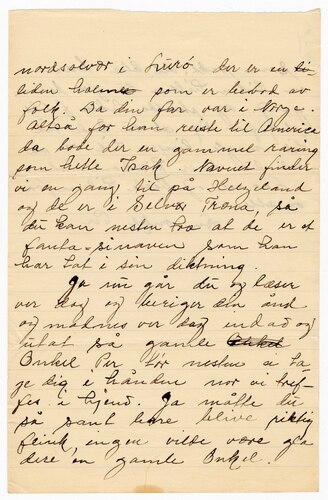 nordsolvær i Lurö der er en
liden holme som er bebod av
folk. Da din far var i Norge.
Altså før han reiste til America
da bode der en gammel raring
som hette Isak. Navnet finder
vi en gang til på Helgeland
og de er i Selvær Træna, så
du kan nesten tro at de er et
fanta-sinaven som han
har tat i sin diktning.
Ja nu går du og læser
ver dag og beriger din ånd
og modnes ver dag indad og
utat så gamle
Onkel Per tør nesten i ta
je dig i hånden nor vi tref-
fes i hjend. Ja måtte du
så sant bare blive riktig
flink, ingen vilde være gla
dere en gamle Onkel.